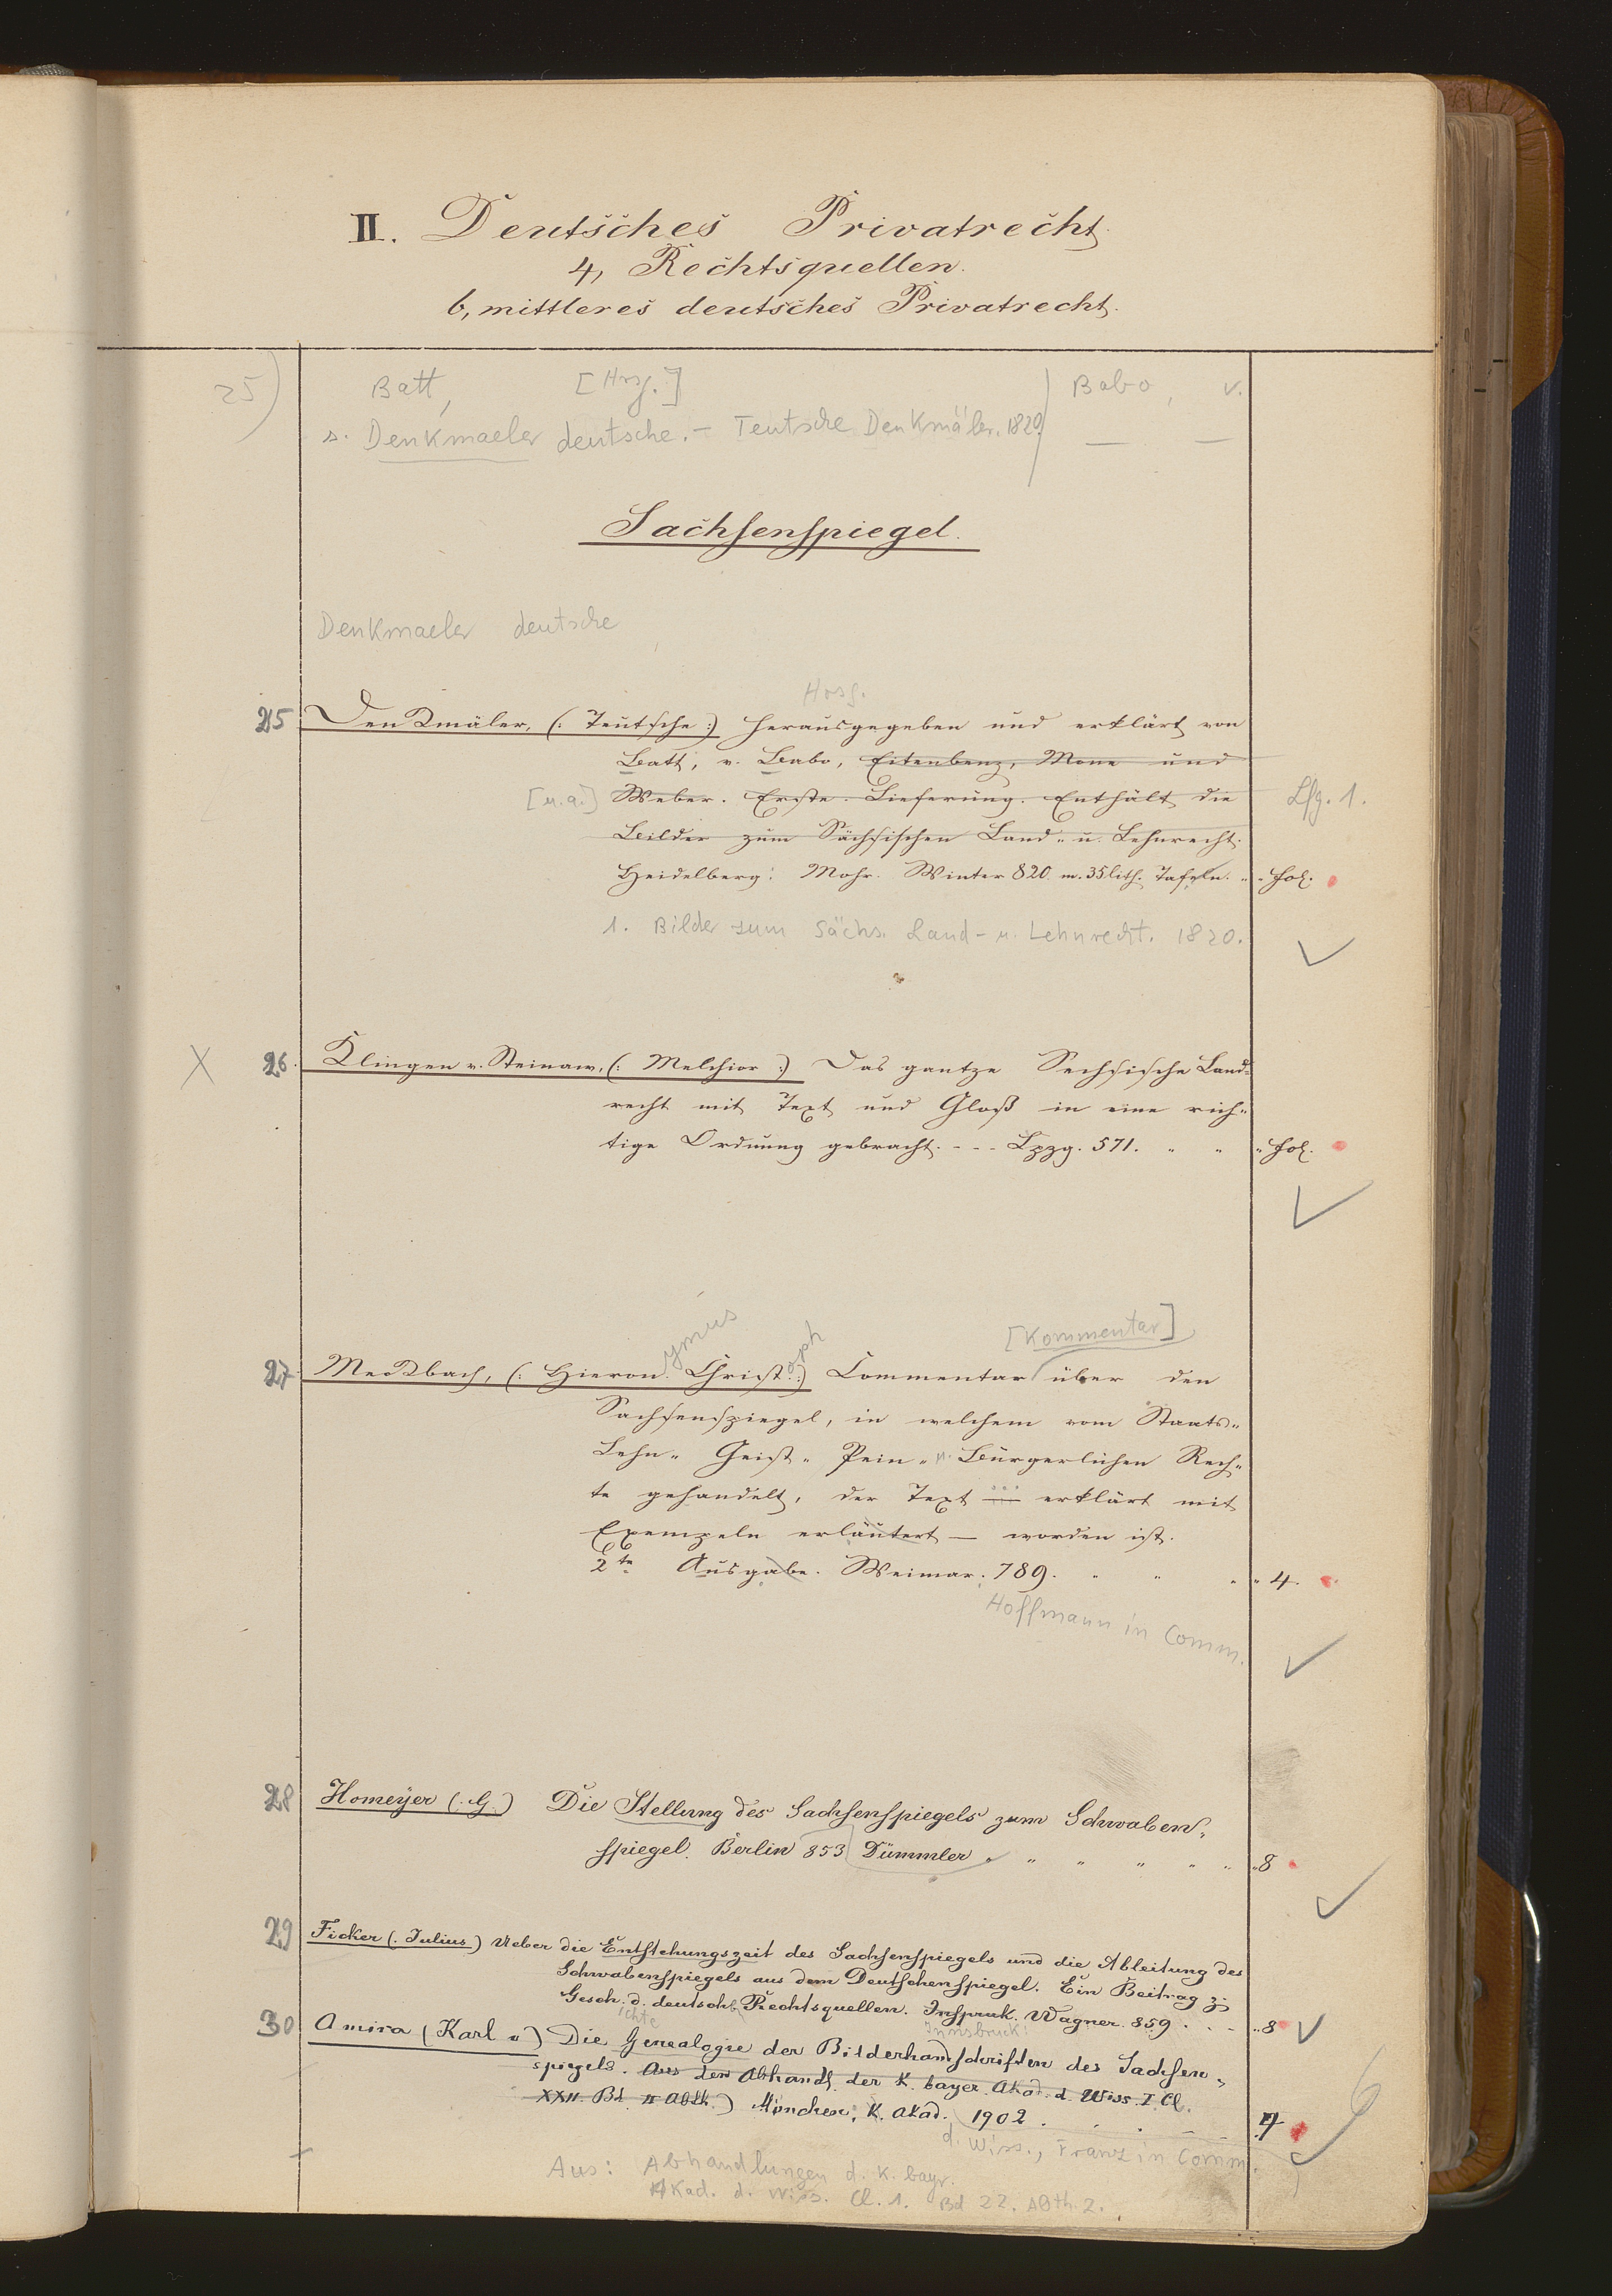 II. Deutsches Privatrecht.
4, Rechtsquellen.
b, mittleres deutsches Privatrecht.
25) Batt, [Hrsg.] Babo, v.
s. Denkmaeler deutsche. – Teutsche Denkmäler. 1820. — —
Sachsenspiegel.
Denkmaeler deutsche
Hrsg.
25 Denkmäler, (: Teutsche :) herausgegeben und erklärt von
Batt, v. Babo, Eitenbenz, Mone und
[u.a.] Weber. Erste Lieferung. Enthält die Lfg. 1.
Bilder zum Sächsischen Land- u. Lehnrecht.
Heidelberg: Mohr. Winter 820 m. 35 lith. Tafeln. " " Fol.
1. Bilder zum Sächs. Land- u. Lehnrecht. 1820.
X 26. Klingen v. Steinaw, (: Melchior :) Das gantze Sechsische Land-
recht mit Text und Gloß in eine rich-
tige Ordnung gebracht. - - - Lpzg. 571. " " " Fol.
ymus oph [Kommentar]
27 Meckbach, (: Hieron. Christ. :) Commentar über den
Sachsenspiegel, in welchem vom Staats-
Lehn- Geist- Pein- u. Bürgerlichen Rech-
te gehandelt, der Text — erklärt mit
Exempeln erläutert — worden ist.
2te Ausgabe. Weimar. 789. " " " " 4.
Hoffmann in Comm.
28 Homeyer (: G.) Die Stellung des Sachsenspiegels zum Schwaben-
spiegel. Berlin 853 Dümmler " " " " " " " 8
29 Ficker (: Julius) Ueber die Entstehungszeit des Sachsenspiegels und die Ableitung des
Schwabenspiegels aus dem Deutschenspiegel. Ein Beitrag z.
Gesch. d. deutsch. Rechtsquellen. Inspruk. Wagner. 859. . - - " 8
ichte Innsbruck:
30 Amira (Karl v) Die Genealogie der Bilderhandschriften des Sachsen-
spiegels. Aus den Abhandl. der K. bayer. Akad. d. Wiss. I. Cl.
XXII. Bd. II Abth.) München, K. Akad. 1902. . . - - 4
d. Wiss., Franz in Comm.
Aus: Abhandlungen d. K. bayr.
Akad. d. Wiss. Cl. 1. Bd 22. Abth. 2.